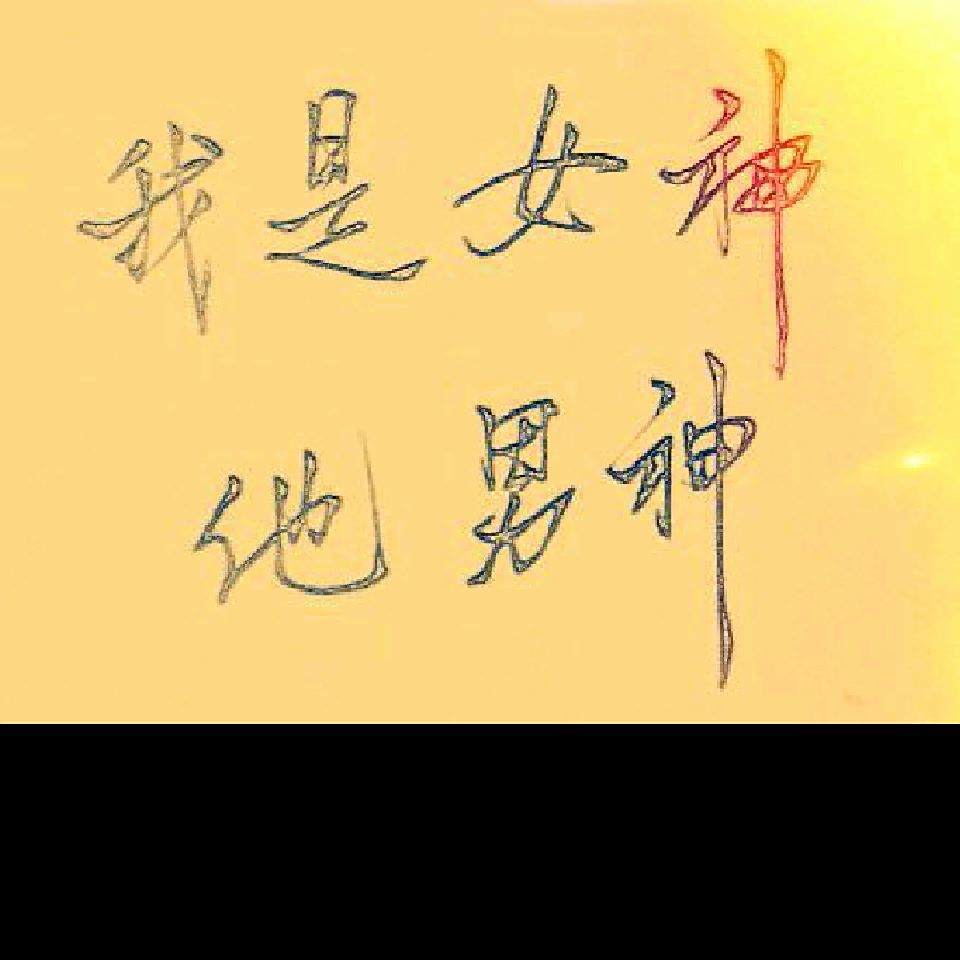 我是女神
他男神